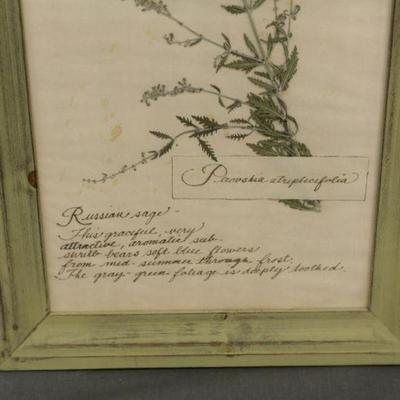 Perovskia atriplicifolia
Russian sage -
This graceful, very
attractive, aromatic sub-
shrub bears soft blue flowers
from mid-summer through frost.
The gray-green foliage is deeply toothed.